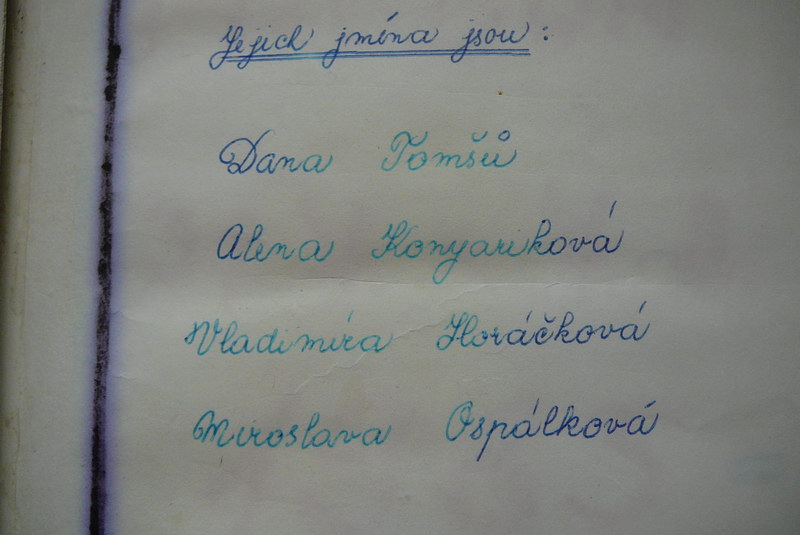 Jejich jména jsou:
Dana Tomšů
Alena Konyariková
Vladimíra Horáčková
Miroslava Ospálková